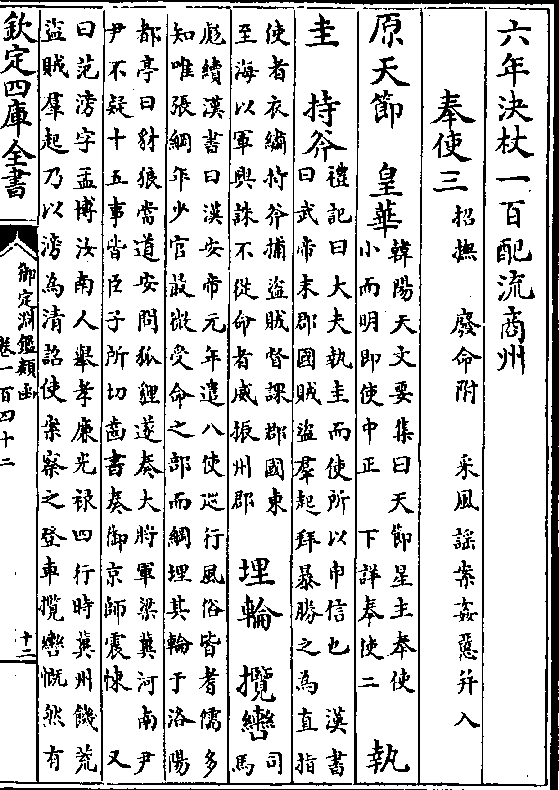 六年決杖一百配流商州
奉使三 招撫 廢命附 采風謡案姦慝并入
原天節 皇華 韓陽天文要集曰天節星主奉使
小而明即使中正 下詳奉使二 執
圭 持斧 禮記曰大夫執圭而使所以申信也 漢書
曰武帝末郡國賊盜羣起拜暴勝之為直指
使者衣繡持斧捕盜賊督課郡國東
至海以軍興誅不從命者威振州郡 埋輪 攬轡 司
馬
彪續漢書曰漢安帝元年遣八使巡行風俗皆耆儒多
知唯張綱年少官最微受命之部而綱埋其輪于洛陽
都亭曰豺狼當道安問狐貍遂奏大將軍梁冀河南尹
尹不疑十五事皆臣子所切齒書奏御京師震悚 又
曰范滂字孟博汝南人舉孝廉光禄四行時冀州饑荒
盜賊羣起乃以滂為清詔使案察之登車攬轡慨然有
欽定四庫全書
御定淵鑑類函
卷一百四十二
十二